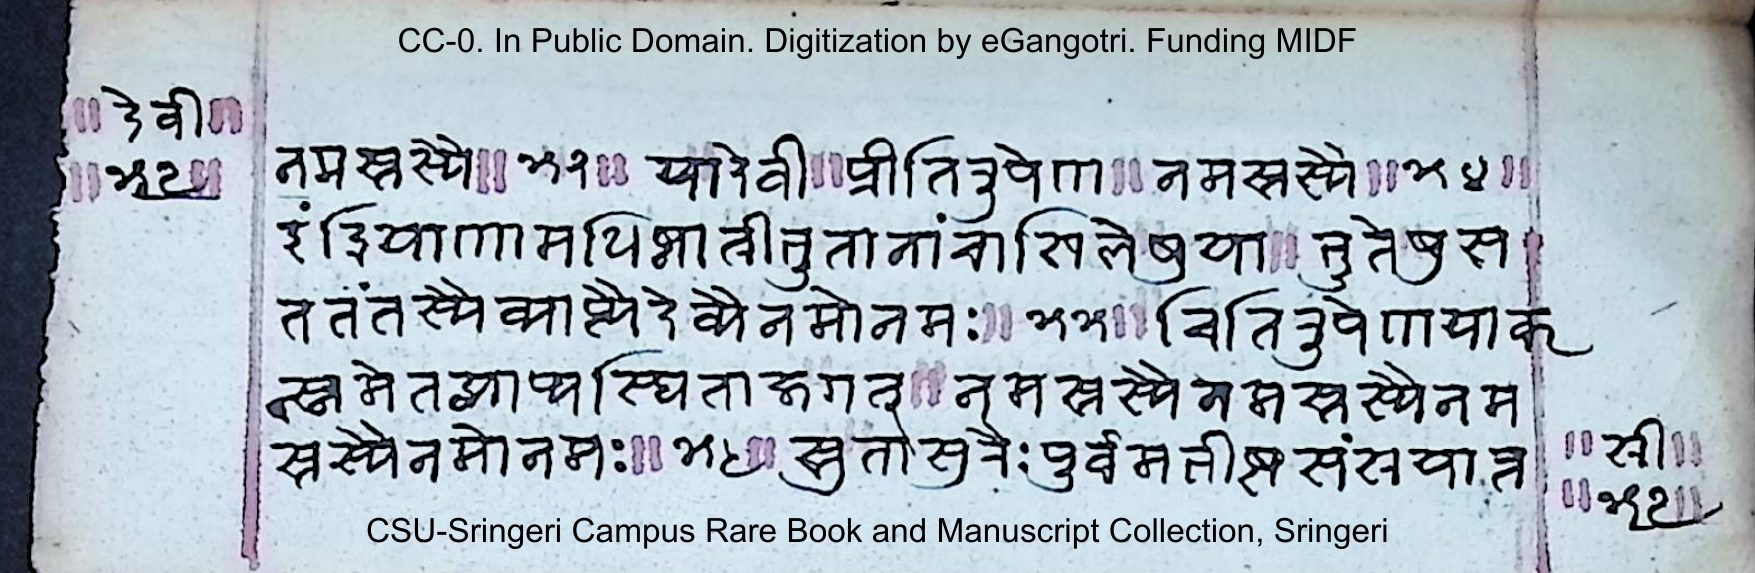 CC-0. In Public Domain. Digitization by eGangotri. Funding MIDF
॥देवी॥
॥५८॥
नमस्तस्यै॥५१॥ यादेवी॥प्रीतिरुपेण॥नमस्तस्यै॥५४॥
इंद्रियाणामधिष्ठात्रीभुतानांचाखिलेषुया॥भुतेषुस
ततंतस्यैव्याप्त्यैदेव्यैनमोनमः॥५५॥चितिरुपेणयाकृ
त्स्नमेतद्व्याप्यस्थिताजगत्॥नमस्तस्यैनमस्तस्यैनम
स्तस्यैनमोनमः॥५६॥स्तुतासुरैःपुर्वमभीष्टसंसयात्त
॥स्री॥
॥५८॥
CSU-Sringeri Campus Rare Book and Manuscript Collection, Sringeri